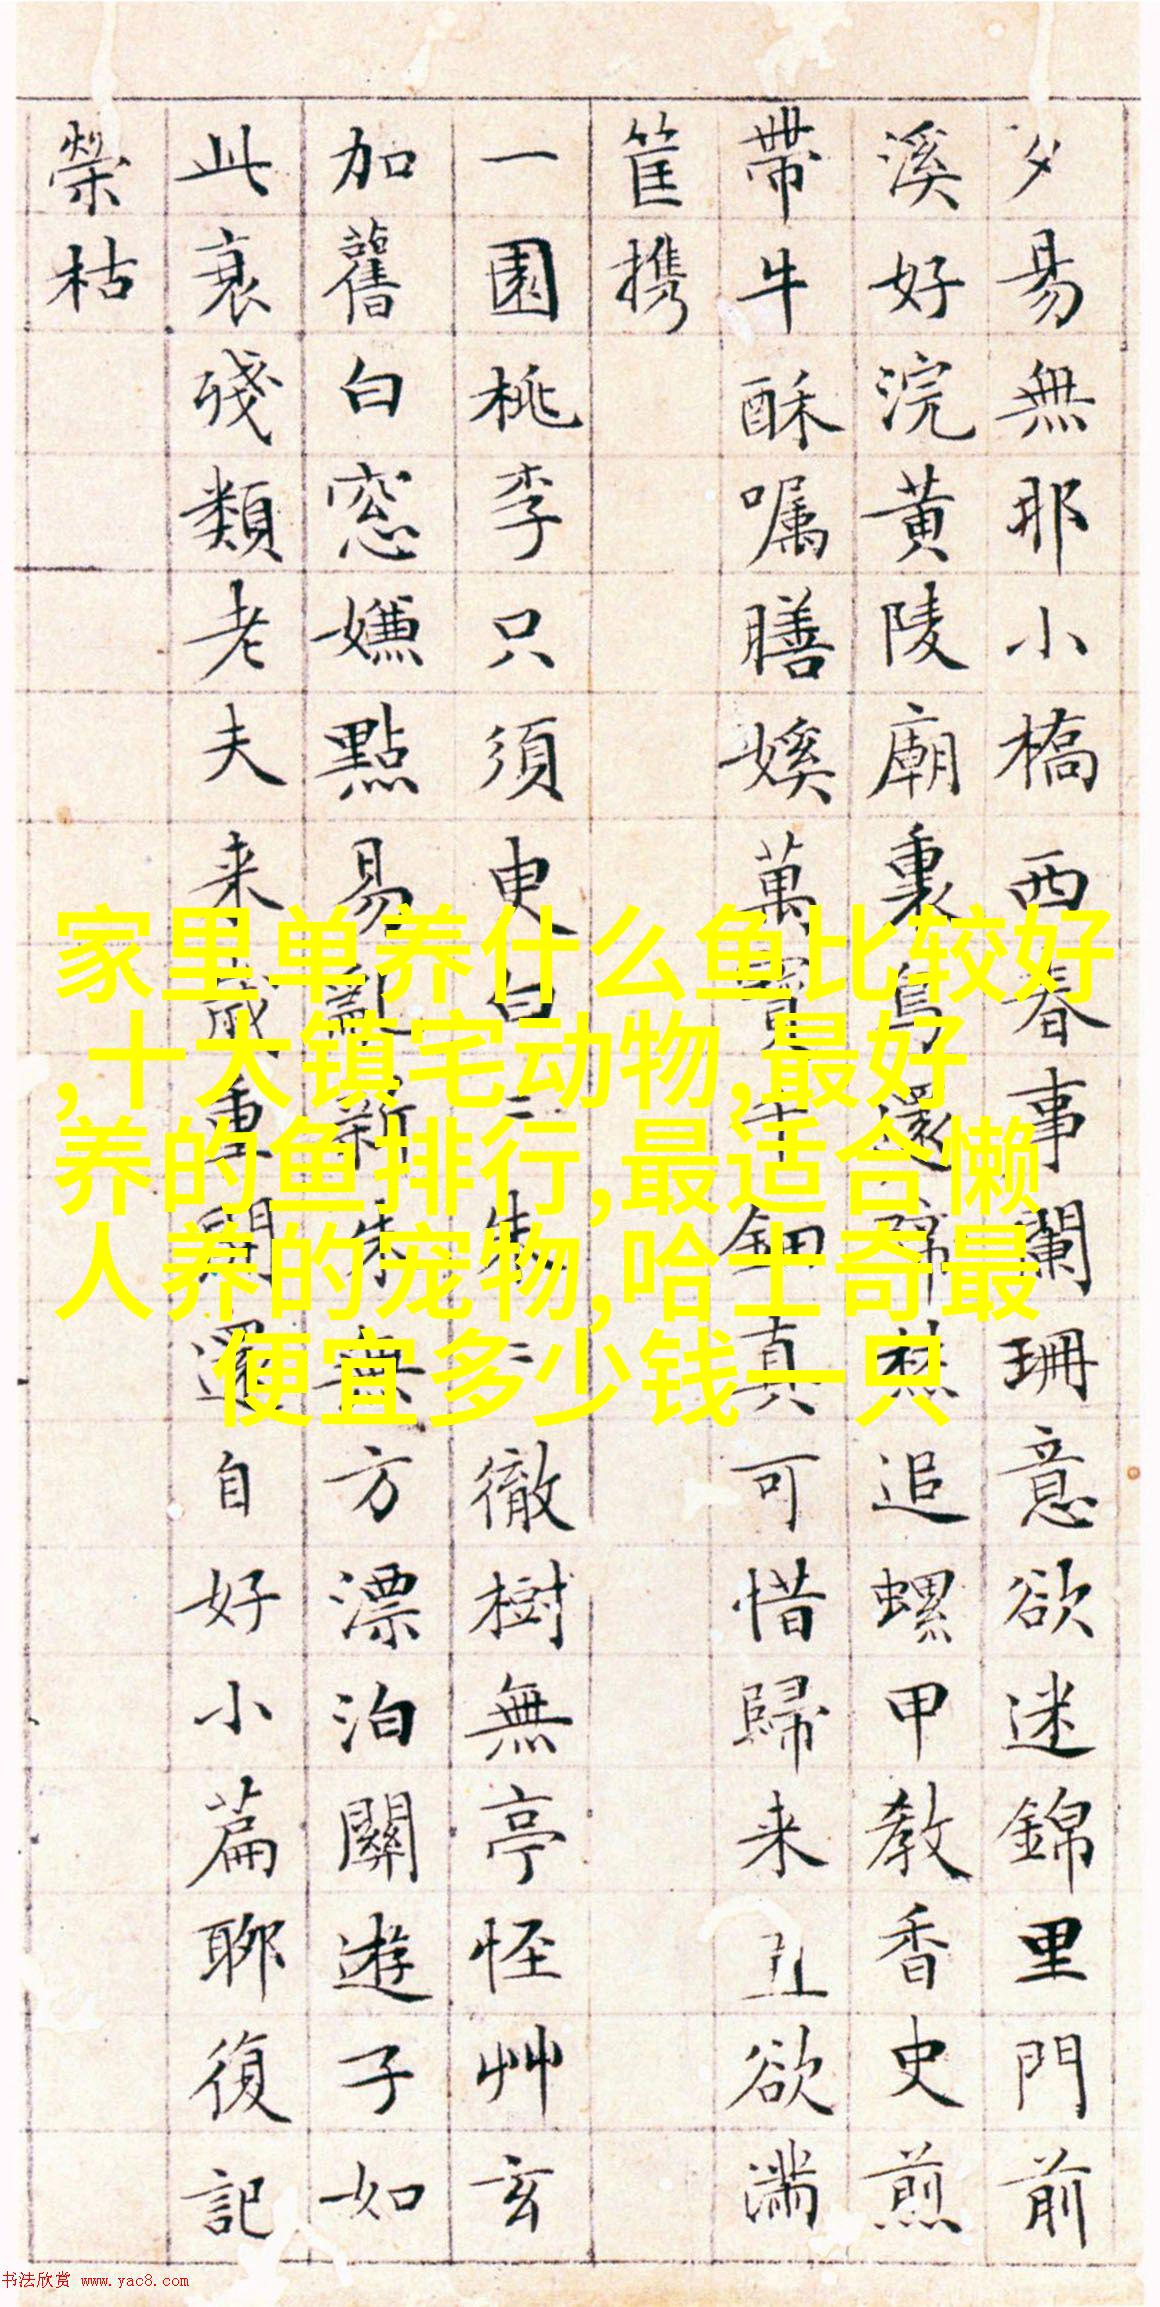 夕易無耶小橋西春事闌珊意欲迷錦里門前
溪好浣黃陵廟裏鳥還啼愁追螺甲教香史煎
帶牛酥囑膳媛萬寶牛鈿真可惜歸来丑欲滿
筐携
一園桃李只須臾白白朱朱徹樹無亭怪艸玄
加舊白窓嫌點易亂新朱無方漂泊關遊子如
此衰殘類老夫来歲重開還自好小篇聊復記
榮枯
家里单养什么鱼比较好
,十大镇宅动物,最好
养的鱼排行,最适合懒
人养的宠物,哈士奇最
便宜多少钱一只
书法欣赏 www.yac8.com